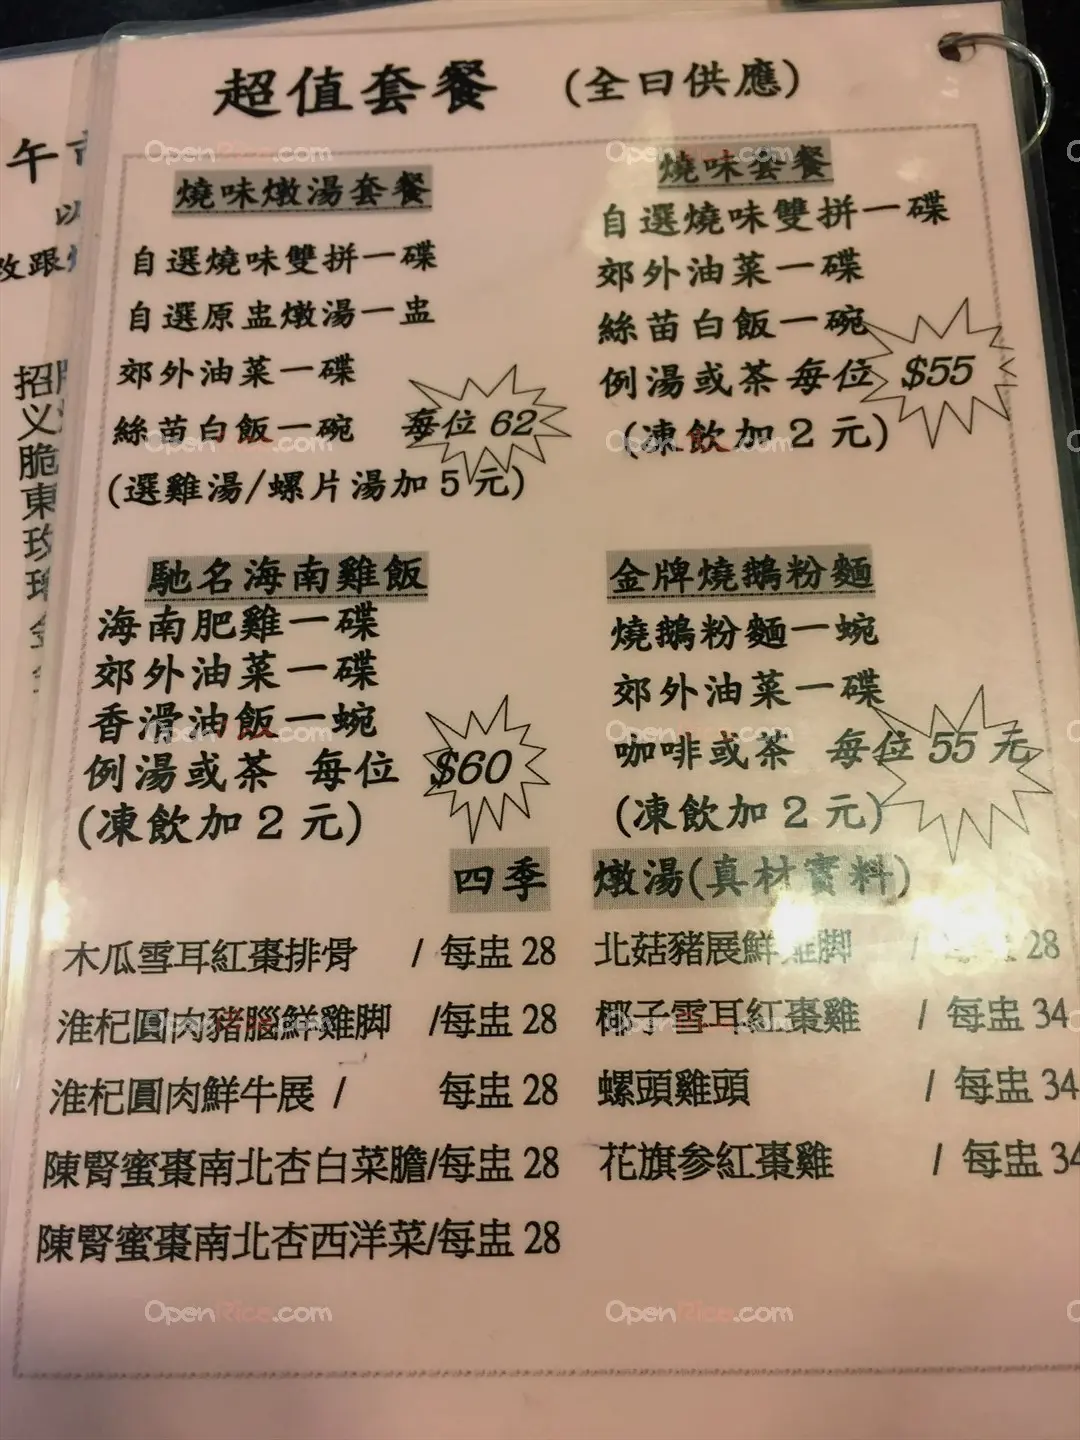 超值套餐 (全日供應)
燒味燉湯套餐
自選燒味雙拼一碟
自選原盅燉湯一盅
郊外油菜一碟
絲苗白飯一碗 每位 62
(選雞湯/螺片湯加 5 元)
燒味套餐
自選燒味雙拼一碟
郊外油菜一碟
絲苗白飯一碗
例湯或茶 每位 $55
(凍飲加 2 元)
馳名海南雞飯
海南肥雞一碟
郊外油菜一碟
香滑油飯一蜿
例湯或茶 每位 $60
(凍飲加 2 元)
金牌燒鵝粉麵
燒鵝粉麵一蜿
郊外油菜一碟
咖啡或茶 每位 55 元
(凍飲加 2 元)
四季 燉湯(真材實料)
木瓜雪耳紅棗排骨 / 每盅 28
淮杞圓肉豬腦鮮雞脚 /每盅 28
淮杞圓肉鮮牛展 / 每盅 28
陳腎蜜棗南北杏白菜膽/每盅 28
陳腎蜜棗南北杏西洋菜/每盅 28
北菇豬展鮮雞脚 / 28
椰子雪耳紅棗雞 / 每盅 34
螺頭雞頭 / 每盅 34
花旗参紅棗雞 / 每盅 34
午
改跟
招
义
脆
東
OpenRice.com
OpenRice.com
OpenRice.com
OpenRice.com
OpenRice.com
OpenRice.com
OpenRice.com
OpenRice.com
OpenRice.com
OpenRice.com